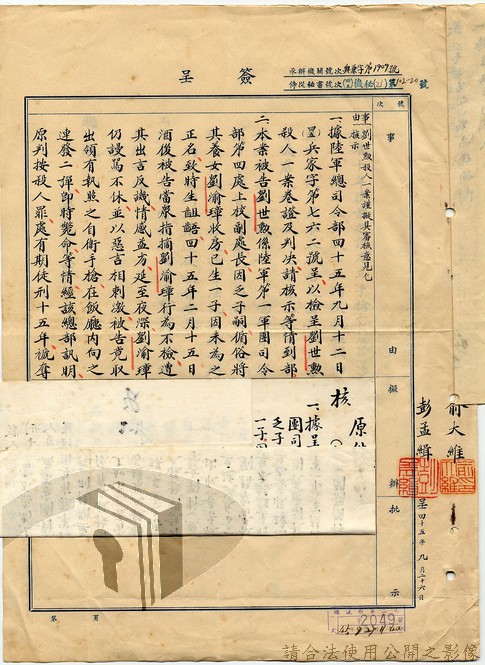 簽呈
承辦機關號次 興兼字第1909號
侍從秘書號次 機秘(乙)第102-20號
號次
事由
擬辦
批示
事由：劉世勲殺人一案謹擬具審核意見乞核示
一、據陸軍總司令部四十五年九月十二日
兵家字第七六二號呈以檢呈劉世勲
殺人一案卷證及判決請核示等情到部
二、本案被告劉世勲係陸軍第一軍團司令
部第四處上校副處長因乏子嗣脩俗將
其養女劉渝瑋收房已生一子因未為之
正名致時生詬語四十五年二月十五日
酒後被告當衆指摘劉渝瑋行為不檢遭
其出言反譏情感益劣延至夜深劉渝瑋
仍謾罵不休並以惡言相刺激被告竟取
出領有執照之自衛手槍在飯廳內向之
連發二彈即時斃命等情經該總部訊明
原判按殺人罪處有期徒刑十五年褫奪
核
原
一、據呈
團司
乏子
一子
俞大維
彭孟緝
呈 四十五年九月二十六日
第 頁
2049
請合法使用公開之影像